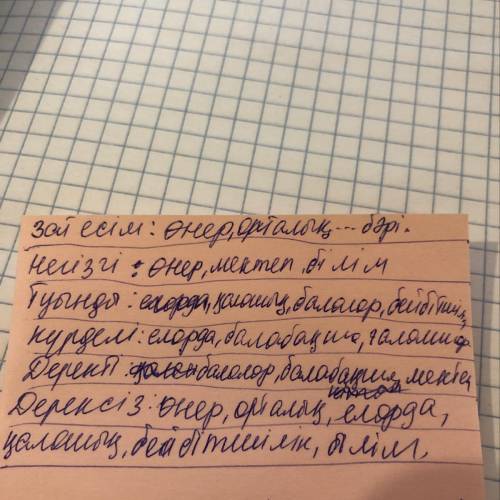 Зат есім: өнер, орталық... бәрі.
Негізгі: өнер, мектеп, білім
Туынды: елорда, қалашық, балалар, бейбітшілік,
Күрделі: елорда, балабақша, ғаламшар
Деректі: балалар, балабақша, мектеп
Дерексіз: өнер, орталық, елорда,
қалашық, бейбітшілік, білім,